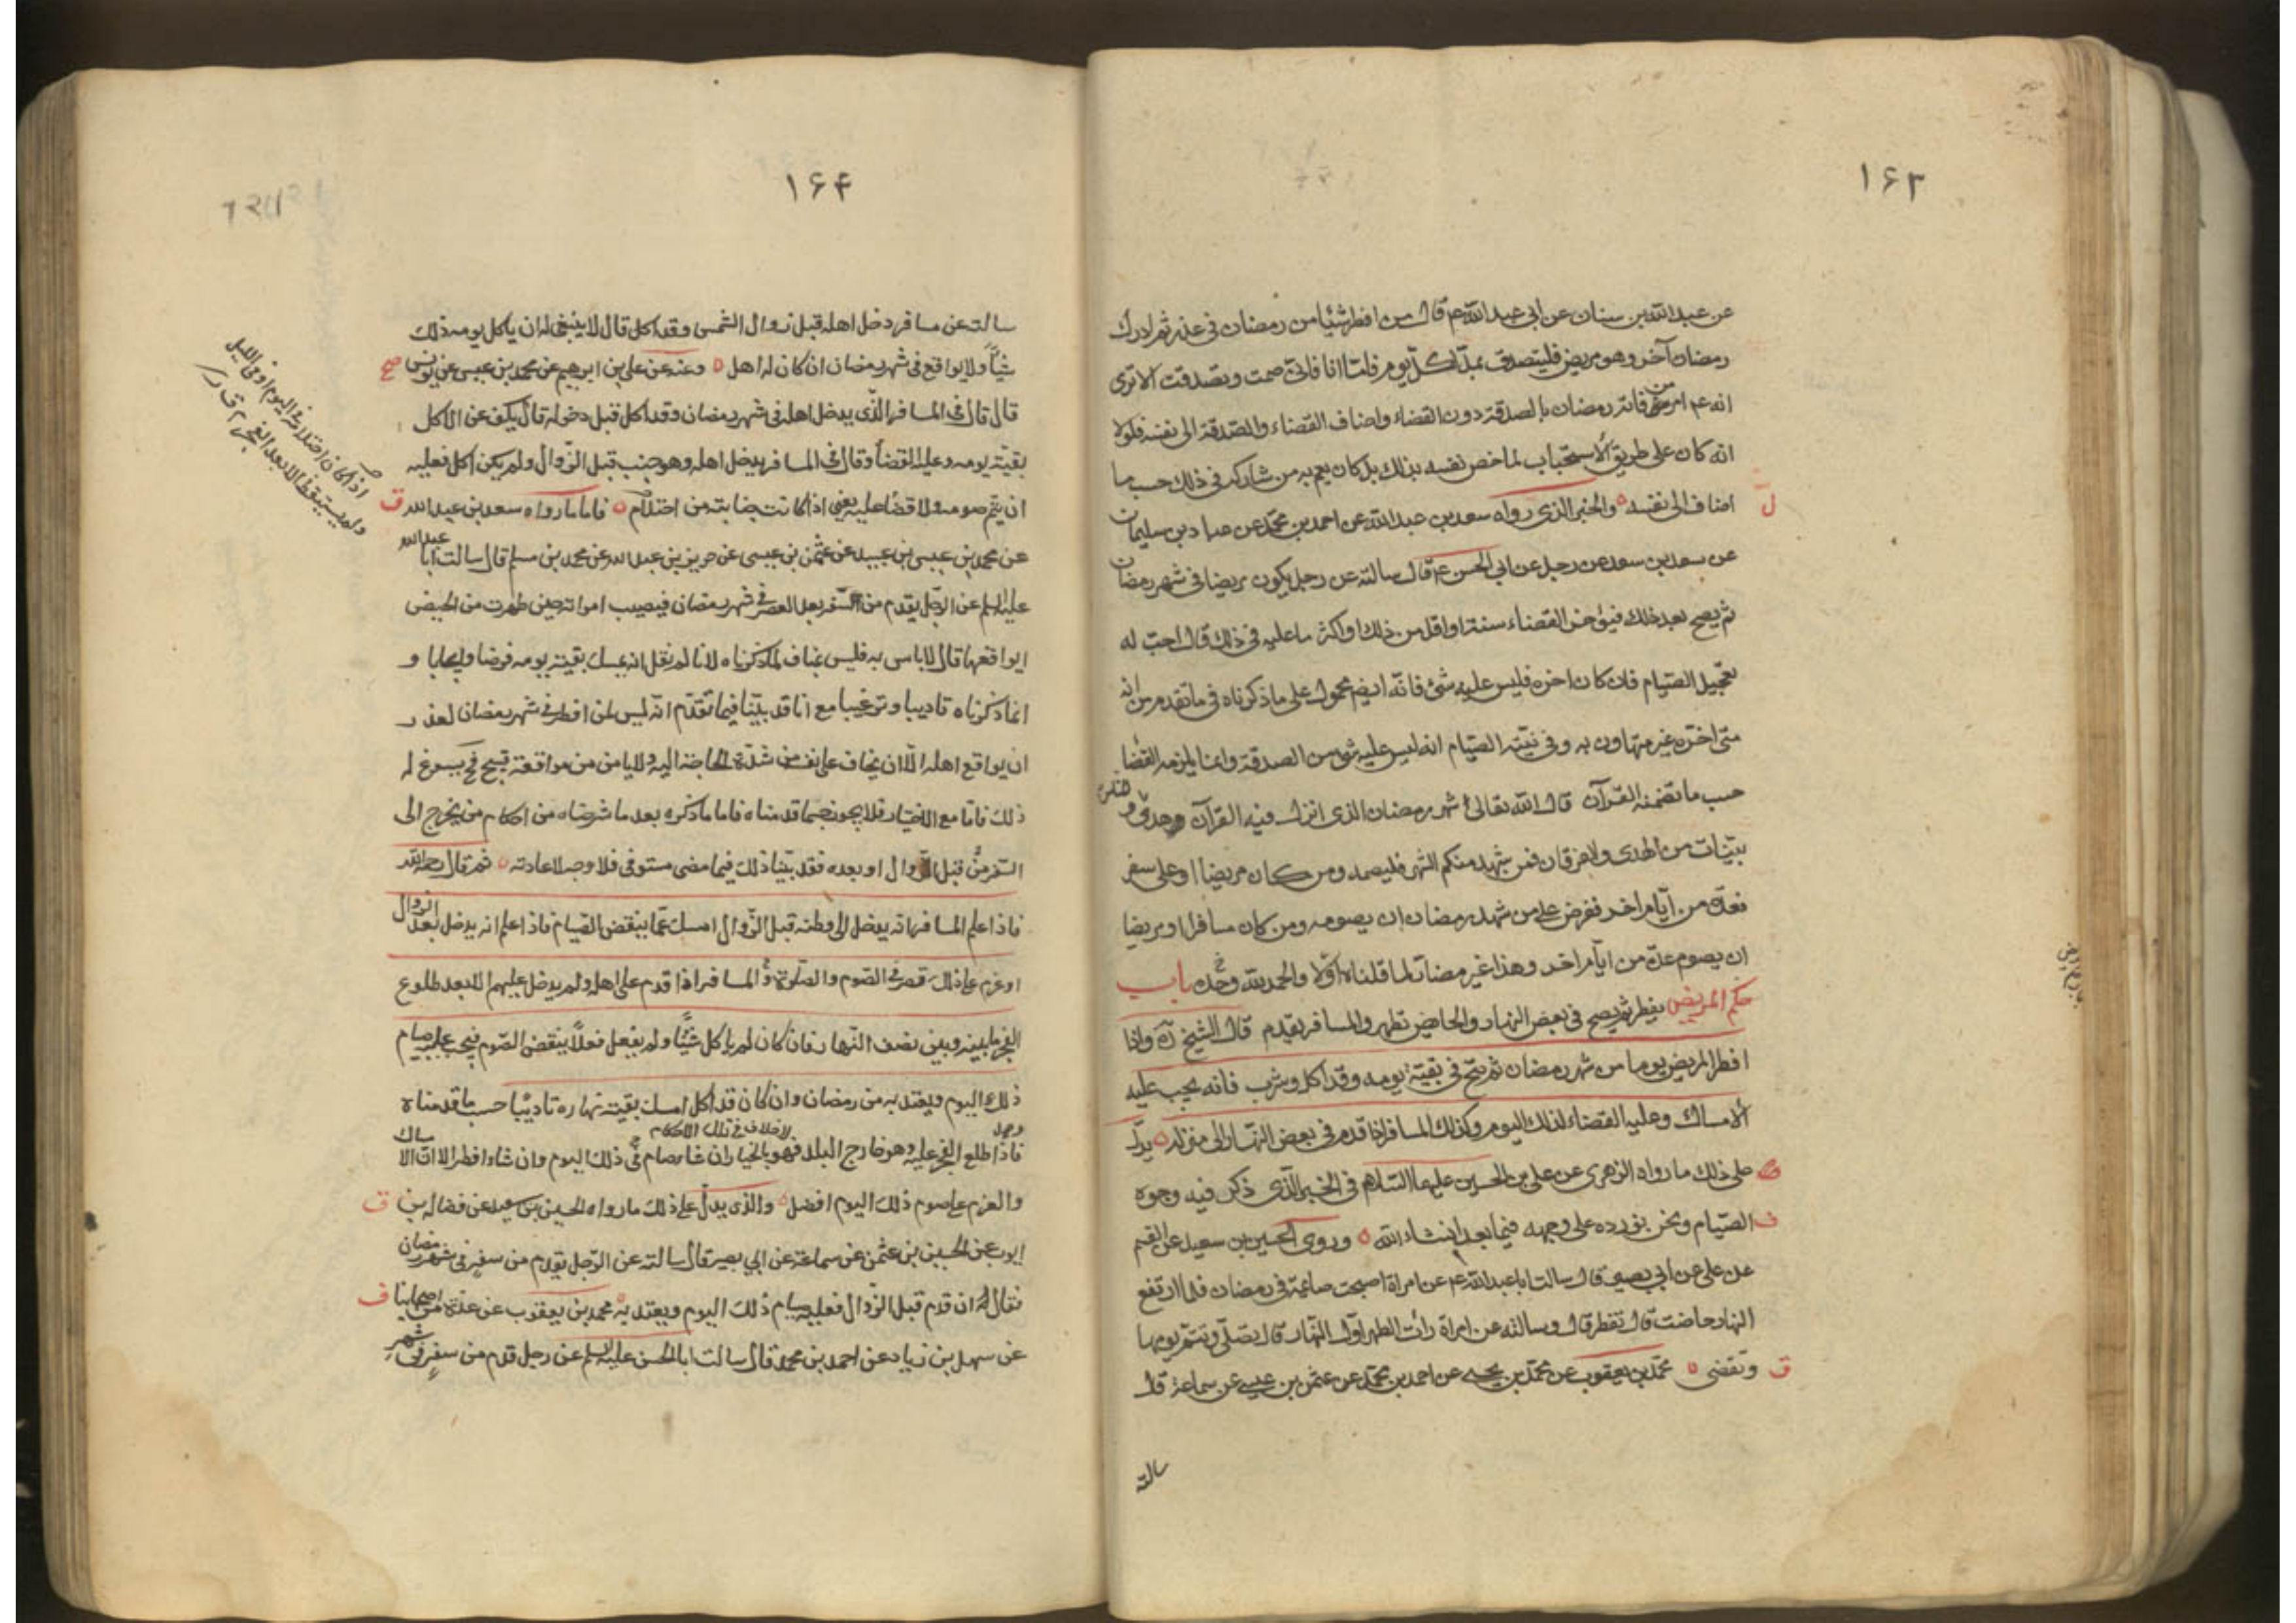 ۱۶۳
عن عبد الله بن سنان عن ابى عبد الله عم قال من افطر شيئا من رمضان فى عذر ثم ادرك
رمضان آخر وهو مريض فليتصدق بمد لكل يوم فامّا انا فانى صمت وتصدقت الا ترى
انه عم امر من فاته رمضان بالصدقة دون القضاء واضاف القضاء والصدقة الى نفسه فلولا
انه كان على طريق الاستحباب لما خص نفسه بذلك بل كان يعم به من شاركه فى ذلك حسب ما
اضاف الى نفسه والخبر الذى رواه سعد بن عبد الله عن احمد بن محمّد عن عباد بن سليمان
ل
عن سعد بن سعد عن رجل عن ابى الحسن عم قال سالته عن رجل يكون مريضا فى شهر رمضان
ثم يصح بعد ذلك فيؤخر القضاء سنة او اقل من ذلك او اكثر ما عليه فى ذلك قال احب له
تعجيل الصيام فان كان اخره فليس عليه شئ فانّه ايضم محمول على ما ذكرناه فى ما تقدم من انه
متى اخره غير متهاون به وفى نيّته الصيام انه ليس عليه شئ من الصدقة وانما يلزمه القضا
حسب ما تضمنه القرآن قال الله تعالى شهر رمضان الذى انزل فيه القرآن هدى
للناس و
بيّنات من الهدى والفرقان فمن شهد منكم الشهر فليصمه ومن كان مريضا او على سفر
فعدّة من ايّام اخر ففرض على من شهد رمضان ان يصومه ومن كان مسافرا او مريضا
ان يصوم عدّة من ايام اخر وهذا غير مضاد لما قلناه اوّلا والحمد لله وحده باب
حكم المريض يفطر ثم يصح فى بعض النهار والحايض تطهر والمسافر يقدم قال الشيخ ره واذا
افطر المريض يوما من شهر رمضان ثم صح فى بقيّة يومه وقد اكل وشرب فانه يجب عليه
الامساك وعليه القضاء لذلك اليوم وكذلك المسافر اذا قدم فى بعض النهار الى منزله يدلّ
على ذلك ما رواه الزهرى عن على بن الحسين عليهما السّلام فى الخبر الّذى ذكر فيه وجوه
الصّيام ونحن نورده على وجهه فيما بعد انشاء الله وروى الحسين بن سعيد عن القسم
ف
عن على عن ابى بصير قال سالت ابا عبد الله عم عن امراة اصبحت صائمة فى رمضان فلما ارتفع
النهار حاضت قال تفطر قال وسالته عن امراة رات الطهر اوّل النهار قال تصلّى وتتم يومها
وتقضى محمّد بن يعقوب عن محمّد بن يحيى عن احمد بن محمّد عن عثمن بن عيسى عن سماعة قال
ق
سالته
۱۶۴
سالته عن مسافر دخل اهله قبل زوال الشمس وقد اكل قال لا ينبغى له ان ياكل يومه ذلك
شيئاً ولا يواقع فى شهر رمضان ان كان له اهل وعنه عن على بن ابرهيم عن محمد بن عيسى عن يونس
صح
قال قال فى المسافر الّذى يدخل اهله فى شهر رمضان وقد اكل قبل دخوله قال يكف عن الاكل
بقيّة يومه وعليه القضاء وقال فى المسافر يدخل اهله وهو جنب قبل الزوال ولم يكن اكل فعليه
ان يتم صومه ولا قضاء عليه يعنى اذا كانت جنابته من احتلام فاما ما رواه سعد بن عبد الله
ق
اذا كان احتلامه فى اليوم او فى الليل
ولم يستيقظ الا بعد الفجر
عن محمد بن عيسى بن عبيد عن عثمن بن عيسى عن حريز بن عبد الله عن محمد بن مسلم قال سالت ابا
عبد الله
عليه السلم عن الرّجل يقدم من السّفر بعد العصر فى شهر رمضان فيصيب امراته حين طهرت من الحيض
ايواقعها قال لا باس به فليس بمناف لما ذكرناه لانا لم نقل انه يمسك بقيّة يومه فرضا وايجابا و
انما ذكرناه تاديبا وترغيبا مع انا قد بيّنا فيما تقدّم انّه ليس لمن افطر فى شهر رمضان لعذر
ان يواقع اهله الّا ان يخاف على نفسه من شدّة الحاجة اليه ولا يامن من مواقعة قبيح فح يسوغ له
ذلك فامّا مع الاختيار فلا يجوز حسبما قدمناه فاما ما ذكره بعد ما شرحناه من احكام من يخرج الى
السّفر قبل الزوال او بعده فقد بيّنا ذلك فيما مضى مستوفى فلا وجه لاعادته ثم قال رحمه الله
فاذا علم المسافر انه يدخل الى وطنه قبل الزّوال امسك عمّا ينقض الصّيام فاذا علم انه يدخل بعد
الزوال
او عزم على ذلك قصر فى الصّوم والصلوة والمسافر اذا قدم على اهله ولم يدخل عليهم الا بعد طلوع
الفجر ما بينه وبين نصف النّهار فان كان لم ياكل شيئا ولم يفعل فعلاً ينقض الصّوم فيجب عليه صيام
ذلك اليوم ويعتد به من رمضان وان كان قد اكل امسك بقيّة نهاره تاديبا حسب ما قدمناه
لاخلاف فى تلك الاحكام
فاذا طلع الفجر عليه وهو خارج البلد فهو بالخيار ان شاء صام فى ذلك اليوم وان شاء افطر الا ان الا
ساك
والعزم على صوم ذلك اليوم افضل والذى يدلّ على ذلك ما رواه الحسين بن سعيد عن فضالة بن
ق
ايوب عن الحسين بن عثمن عن سماعة عن ابى بصير قال سالته عن الرّجل يقدم من سفر فى شهر رمضان
فقال ان قدم قبل الزوال فعليه صيام ذلك اليوم ويعتد به محمد بن يعقوب عن عدّة من اصحابنا
ف
عن سهل بن زياد عن احمد بن محمد قال سالت ابا الحسن عليه السلم عن رجل قدم من سفر فى شهر